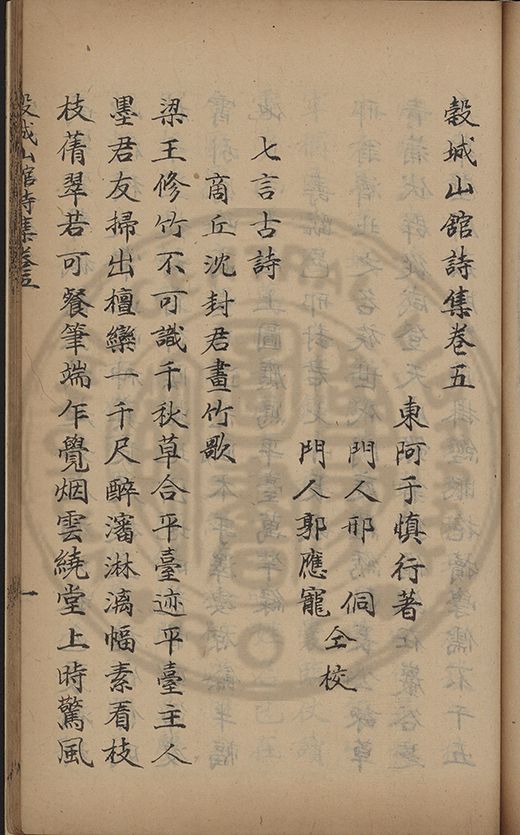 穀城山館詩集卷五
東阿于慎行著
門人邢侗
門人郭應寵
仝校
七言古詩
商丘沈封君畫竹歌
梁王修竹不可識千秋草合平臺迹平臺主人
墨君友掃出檀欒一千尺醉瀋淋漓幅素看枝
枝蒨翠若可餐筆端乍覺烟雲繞堂上時驚風
穀城山館詩集卷五
一